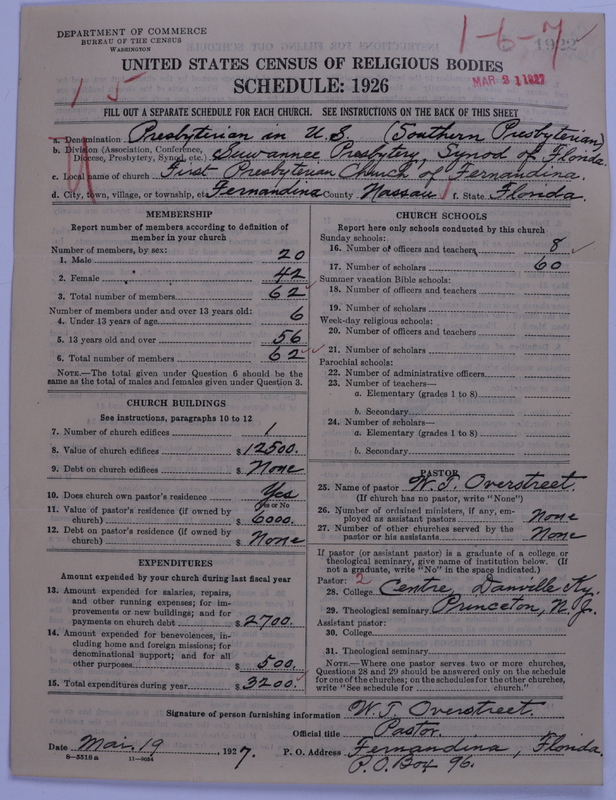 DEPARTMENT OF COMMERCE
BUREAU OF THE CENSUS
WASHINGTON
1-6-7
1922
MAR 21 1927
UNITED STATES CENSUS OF RELIGIOUS BODIES
SCHEDULE: 1926
15
FILL OUT A SEPARATE SCHEDULE FOR EACH CHURCH. SEE INSTRUCTIONS ON THE BACK OF THIS SHEET
a. Denomination Presbyterian in U.S. (Southern Presbyterian)
b. Division (Association, Conference, Diocese, Presbytery, Synod, etc.) Suwannee Presbytery, Synod of Florida.
c. Local name of church First Presbyterian Church of Fernandina.
d. City, town, village, or township, etc. Fernandina County Nassau f. State Florida.
MEMBERSHIP
Report number of members according to definition of
member in your church
Number of members, by sex:
1. Male 20
2. Female 42
3. Total number of members 62
Number of members under and over 13 years old:
4. Under 13 years of age 6
5. 13 years old and over 56
6. Total number of members 62
NOTE.—The total given under Question 6 should be
same as the total of males and females given under Question 3.
CHURCH BUILDINGS
See instructions, paragraphs 10 to 12
7. Number of church edifices 1
8. Value of church edifices $ 12500.
9. Debt on church edifices $ None
10. Does church own pastor's residence Yes
Yes or No
11. Value of pastor's residence (if owned by
church) $ 6000.
12. Debt on pastor's residence (if owned by
church) $ None
EXPENDITURES
Amount expended by your church during last fiscal year
13. Amount expended for salaries, repairs,
and other running expenses; for im-
provements or new buildings; and for
payments on church debt $ 2700.
14. Amount expended for benevolences, in-
cluding home and foreign missions; for
denominational support; and for all
other purposes $ 500.
15. Total expenditures during year $ 3200.
CHURCH SCHOOLS
Report here only schools conducted by this church
Sunday schools:
16. Number of officers and teachers 8
17. Number of scholars 60
Summer vacation Bible schools:
18. Number of officers and teachers
19. Number of scholars
Week-day religious schools:
20. Number of officers and teachers
21. Number of scholars
Parochial schools:
22. Number of administrative officers
23. Number of teachers—
a. Elementary (grades 1 to 8)
b. Secondary
24. Number of scholars—
a. Elementary (grades 1 to 8)
b. Secondary
PASTOR
25. Name of pastor W. T. Overstreet.
(If church has no pastor, write "None")
26. Number of ordained ministers, if any, em-
ployed as assistant pastors None
27. Number of other churches served by the
pastor or his assistants None
If pastor (or assistant pastor) is a graduate of a college or
theological seminary, give name of institution below. (If
not a graduate, write "No" in the space indicated.)
Pastor: 2
28. College Centre, Danville Ky.
29. Theological seminary Princeton, N. J.
Assistant pastor:
30. College
31. Theological seminary
NOTE.—Where one pastor serves two or more churches,
Questions 28 and 29 should be answered only on the schedule
for one of the churches; on the schedules for the other churches,
write "See schedule for church."
Signature of person furnishing information W. T. Overstreet.
Official title Pastor.
Date Mar. 19 1927. P. O. Address Fernandina, Florida.
8-5518a 11-9054 P.O. Box 96.